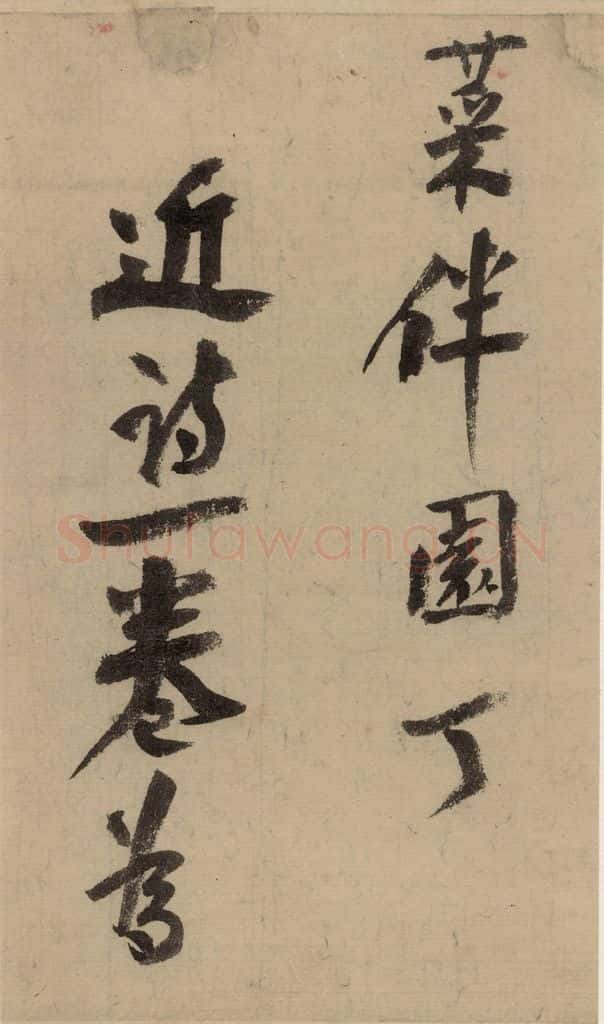 菜伴園丁
近詩一卷為
Shufawang.CN